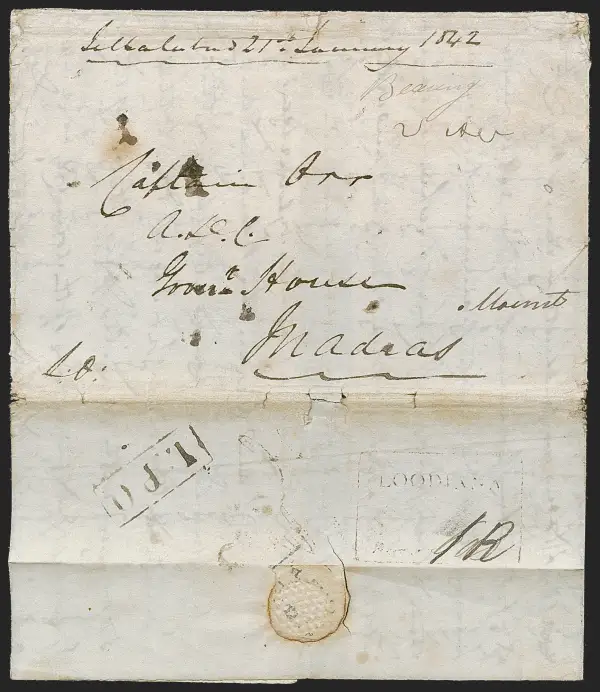 Jellalabad 21st January 1842
Bearing
Captain Orr
A.D.C.
Govnt. House
Mount
Madras
L.O.
LOODIANA
1R